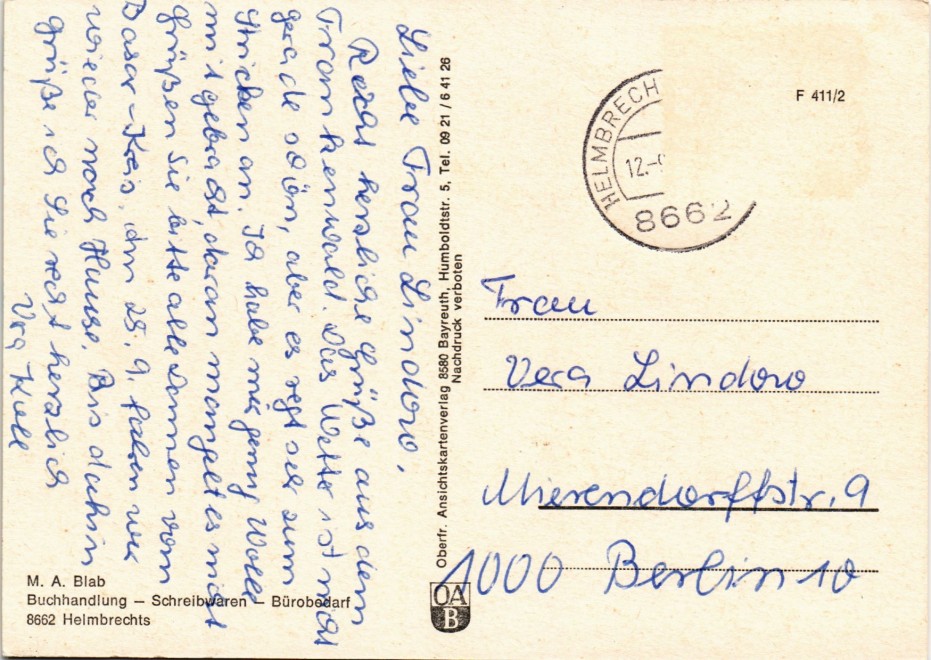 Liebe Frau Lindow,
Recht herzliche Grüße aus dem
Frankenwald. Das Wetter ist nicht
gerade schön, aber es regt sehr zum
Stricken an. Ich habe mir genug Wolle
mitgebracht, daran mangelt es nicht
Grüßen Sie bitte alle Damen vom
Basar-Kreis. Am 25. 9. fahren wir
wieder nach Hause. Bis dahin
grüße ich Sie recht herzlich
M. A. Blab
Buchhandlung – Schreibwaren – Bürobedarf
8662 Helmbrechts
Oberfr. Ansichtskartenverlag 8580 Bayreuth, Humboldtstr. 5, Tel. 09 21 / 6 41 26
Nachdruck verboten
OA
B
HELMBRECH
12.-
8662
F 411/2
Frau
Vera Lindow
Mierendorffstr. 9
1000 Berlin 10